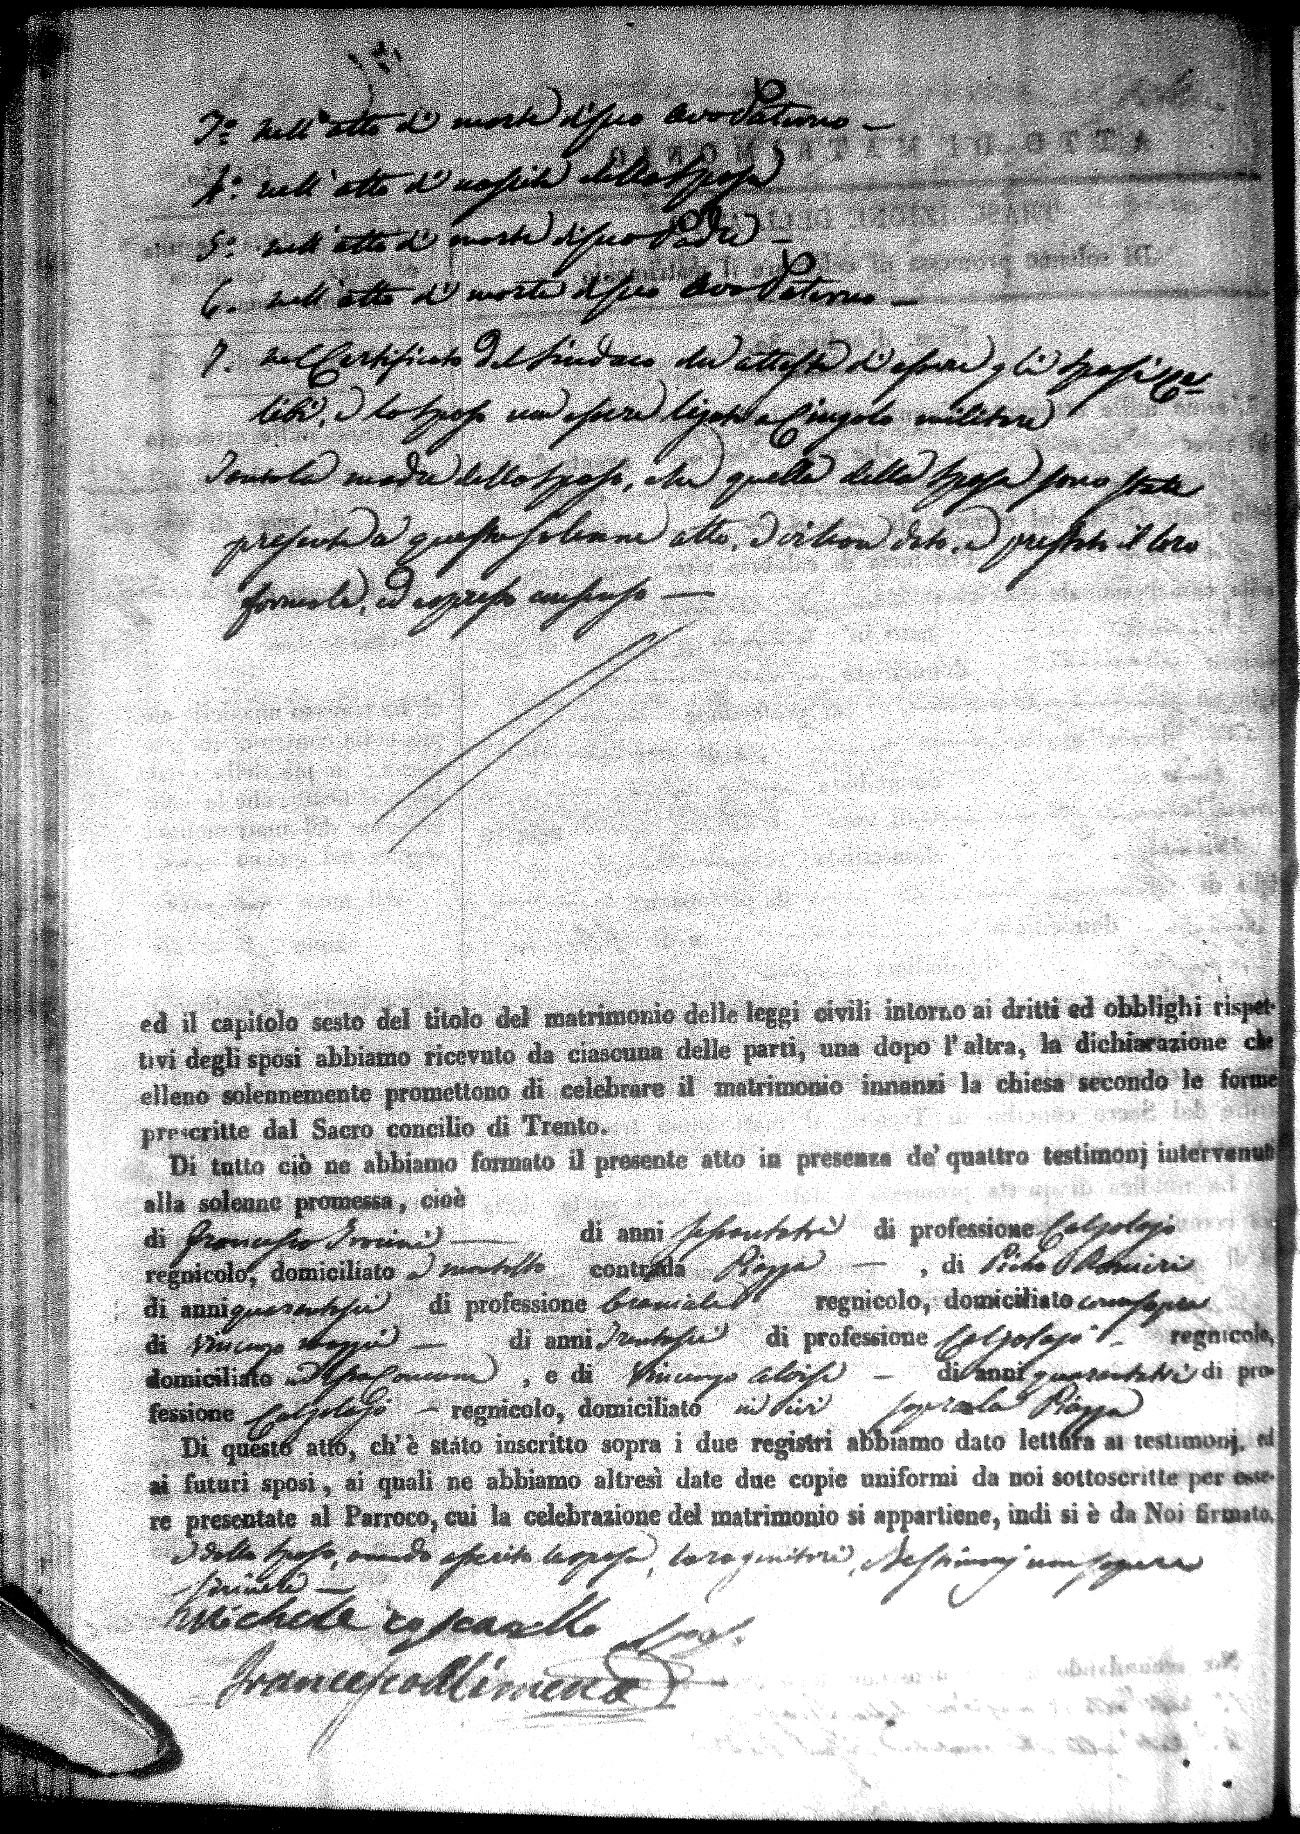 3.° nell'atto di morte di suo Avo Paterno —
4.° nell'atto di nascita della Sposa
5.° nell'atto di morte di suo Padre —
6. nell'atto di morte di suo Avo Paterno —
7. nel Certificato del Sindaco che attesta di essere gli Sposi Ce-
libi, e lo Sposo non essere ligato a Cingolo militare
Tanto la madre dello Sposo, che quella della Sposa sono state
presenti a questo solenne atto, e vi han dato, e prestato il loro
formale, ed espresso consenso —
ed il capitolo sesto del titolo del matrimonio delle leggi civili intorno ai dritti ed obblighi rispet-
tivi degli sposi abbiamo ricevuto da ciascuna delle parti, una dopo l'altra, la dichiarazione che
elleno solennemente promettono di celebrare il matrimonio innanzi la chiesa secondo le forme
prescritte dal Sacro concilio di Trento.
Di tutto ciò ne abbiamo formato il presente atto in presenza de' quattro testimonj intervenuti
alla solenne promessa, cioè
di Francesco — di anni di professione Calzolajo
regnicolo, domiciliato contrada Piazza — , di Pietro Ranieri
di anni quarantasei di professione Bracciale regnicolo, domiciliato come sopra
di Vincenzo — di anni Trentasei di professione Calzolajo - regnicolo,
domiciliato , e di Vincenzo Aloisi — di anni quarantatrè di pro-
fessione Calzolajo — regnicolo, domiciliato ivi sopra la Piazza
Di questo atto, ch'è stato inscritto sopra i due registri abbiamo dato lettura ai testimonj, ed
ai futuri sposi, ai quali ne abbiamo altresì date due copie uniformi da noi sottoscritte per esse-
re presentate al Parroco, cui la celebrazione del matrimonio si appartiene, indi si è da Noi firmato,
e dallo Sposo, avendo asserito la sposa, loro genitori, e Testimonj non sapere
scrivere —
Michele
Francesco